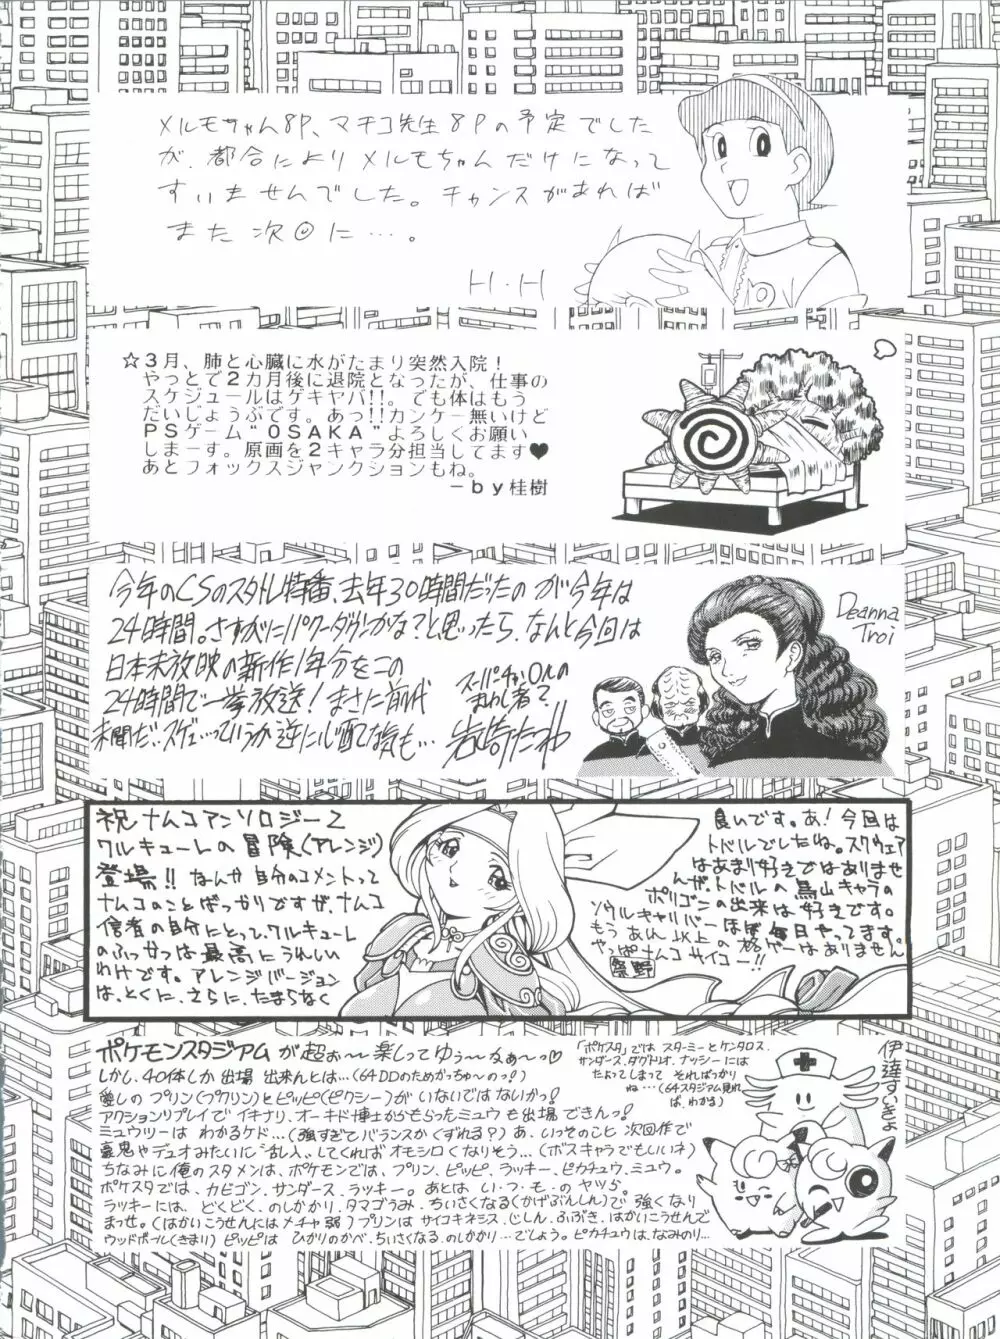 メルモちゃん8P、マチコ先生8Pの予定でした
が、都合によりメルモちゃんだけになって
すいませんでした。チャンスがあれば
また次回に…。
H.H
☆3月、肺と心臓に水がたまり突然入院！
やっとで2カ月後に退院となったが、仕事の
スケジュールはゲキヤバ!!。でも体はもう
だいじょうぶです。あっ!!カンケー無いけど
PSゲーム“OSAKA”よろしくお願い
しまーす。原画を2キャラ分担当してます♥
あとフォックスジャンクションもね。
－by桂樹
今年のCSのスタトレ特番、去年30時間だったのが今年は
24時間。さすがにパワーダウンかな？と思ったら、なんと今回は
日本未放映の新作1年分をこの
24時間で一挙放送！まさに前代
未聞だ、スゲェ…っていうか逆に心配な気も…
スーパーチャンネルの
まわし者？
岩崎たつや
Deanna
Troi
祝 ナムコアンソロジー2
ワルキューレの冒険(アレンジ)
登場!! なんか自分のコメントって
ナムコのことばっかりですが、ナムコ
信者の自分にとって、ワルキューレ
のふっかつは最高にうれしい
わけです。アレンジバージョン
は、とくに、さらに、たまらなく
良いです。あ！今回は
トバルでしたね。スクウェア
はあまり好きではありませ
んが、トバルの鳥山キャラの
ポリゴンの出来は好きです。
ソウルキャリバーはほぼ毎日やってます。
もうあれ以上の格ゲーはありません
やっぱナムコサイコー!!
ポケモンスタジアムが超ぉ～楽しってゆぅ～なぁ～っ♡
しかし、40体しか出場出来んとは…(64DDのためがっちゅ～のっ!)
愛しのプリン(プクリン)とピッピ(ピクシー)がいないではないかっ！
アクションリプレイでイキナリ、オーキド博士からもらったミュウも出場できんっ！
ミュウツーはわかるケド…(強すぎてバランスがくずれる？)あ、いっそのこと次回作で
豪鬼やデュオみたいに乱入、してくればオモシロくなりそう…(ボスキャラでもしいいネ)
ちなみに俺のスタメンは、ポケモンでは、プリン、ピッピ、ラッキー、ピカチュウ、ミュウ。
ポケスタでは、カビゴン、サンダース、ラッキー。あとはい・つ・も・のヤツら。
ラッキーには、どくどく、のしかかり、タマゴうみ、ちいさくなる(かげぶんしん)で強くなり
まっせ。(はかいこうせんにはメチャ弱)プリンはサイコキネシス、じしん、ふぶき、はかいこうせんで
ウッドボール(きまり)ピッピは ひかりのかべ、ちいさくなる、のしかかり…でしょう。ピカチュウは、なみのり…
「ポケスタ」ではスターミーとケンタロス、
サンダース、ダグトリオ、ナッシーには
たよってしまって そればっかり
ね…(64スタジアム見れ
ば、わかる)
伊達すいきょ